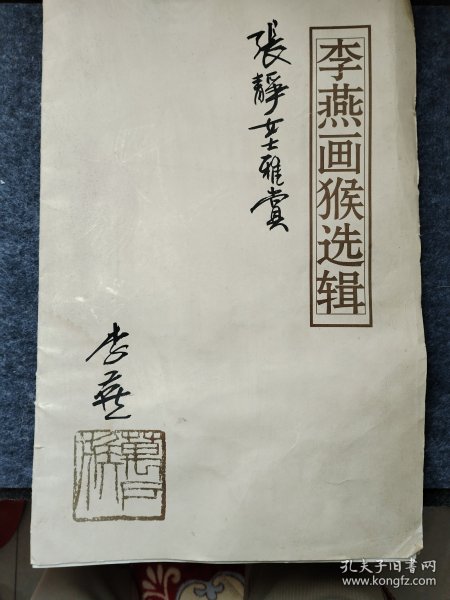 李燕画猴选辑
張靜女士雅賞
李燕
孔夫子旧书网
www.kongfz.com